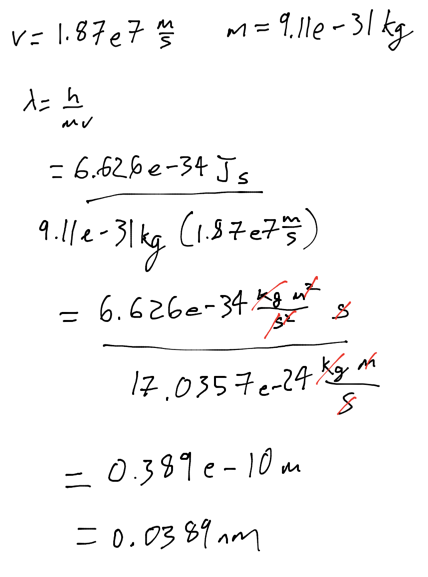 v = 1.87e7 m/s m = 9.11e-31 kg
λ = h/mv
= 6.626e-34 J s
9.11e-31 kg (1.87e7 m/s)
= 6.626e-34 kg m²/s² s
17.0357e-24 kg m/s
= 0.389e-10 m
= 0.0389 nm